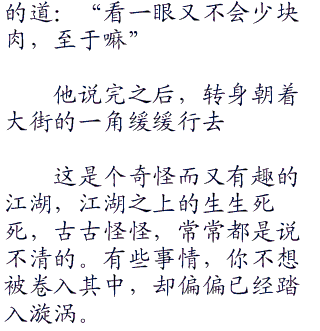 的道：“看一眼又不会少块
肉，至于嘛”
他说完之后，转身朝着
大街的一角缓缓行去
这是个奇怪而又有趣的
江湖，江湖之上的生生死
死，古古怪怪，常常都是说
不清的。有些事情，你不想
被卷入其中，却偏偏已经踏
入漩涡。